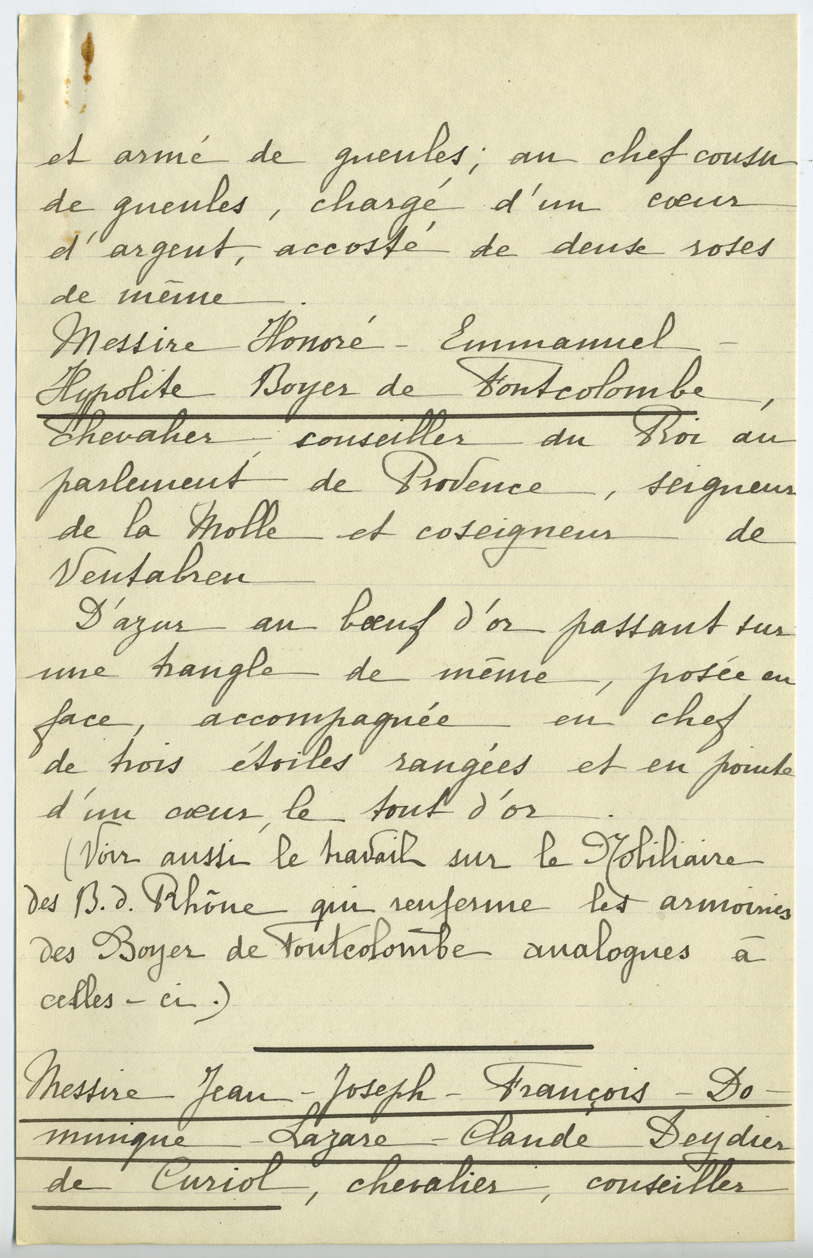 et armé de gueules; au chef cousu
de gueules, chargé d'un cœur
d'argent, accosté de deux roses
de même.
Messire Honoré - Emmanuel -
Hypolite Boyer de Fontcolombe,
chevalier, conseiller du Roi au
parlement de Provence, seigneur
de la Molle et coseigneur de
Ventabren
D'azur au bœuf d'or passant sur
une trangle de même, posée en
face, accompagnée en chef
de trois étoiles rangées et en pointe
d'un cœur, le tout d'or.
(Voir aussi le travail sur le Nobiliaire
des B. d. Rhône qui renferme les armoiries
des Boyer de Fontcolombe analogues à
celles-ci.)
Messire Jean - Joseph - François - Do-
minique - Lazare - Claude Deydier
de Curiol, chevalier, conseiller